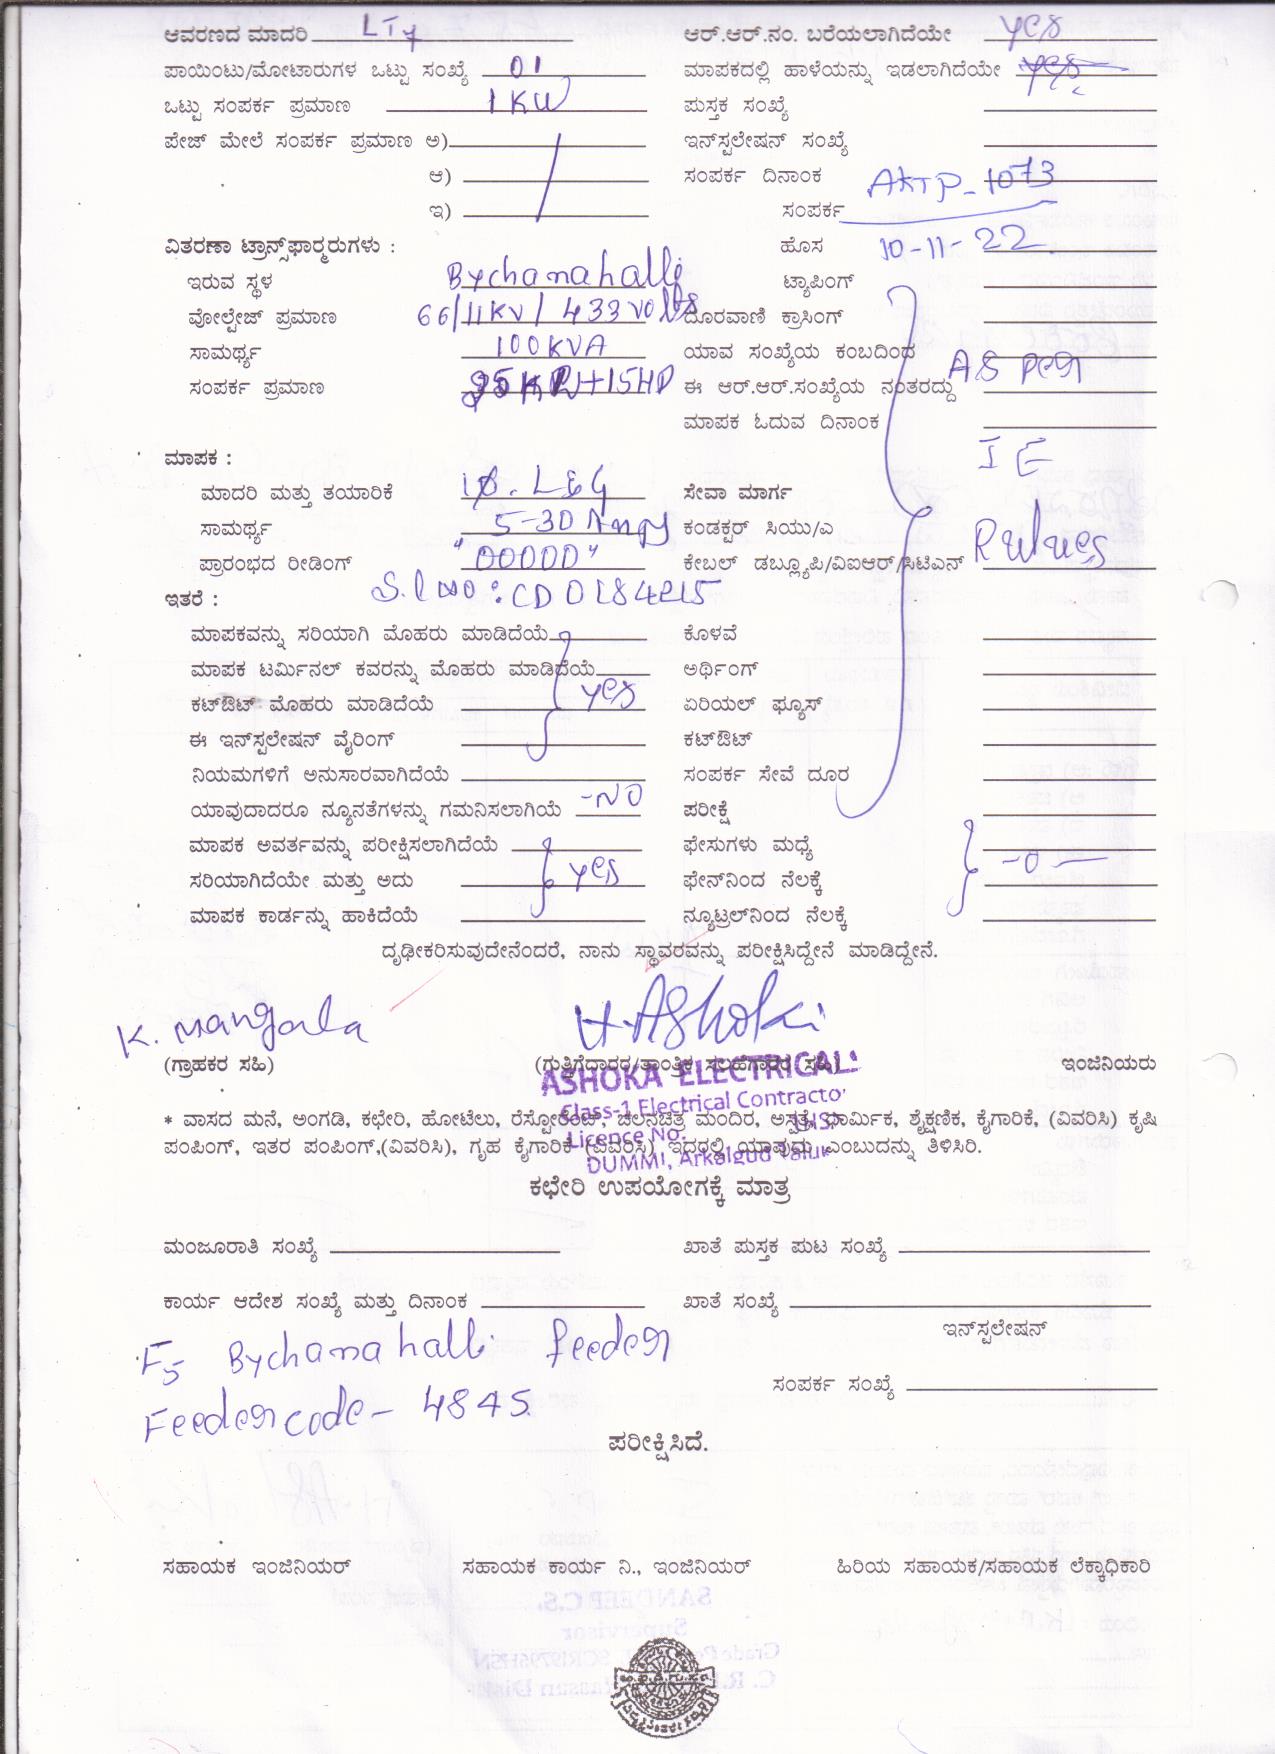 ಆವರಣದ ಮಾದರಿ LT7 ಆರ್.ಆರ್.ನಂ. ಬರೆಯಲಾಗಿದೆಯೇ yes
ಪಾಯಿಂಟು/ಮೋಟಾರುಗಳ ಒಟ್ಟು ಸಂಖ್ಯೆ 01 ಮಾಪಕದಲ್ಲಿ ಹಾಳೆಯನ್ನು ಇಡಲಾಗಿದೆಯೇ yes
ಒಟ್ಟು ಸಂಪರ್ಕ ಪ್ರಮಾಣ 1KW ಪುಸ್ತಕ ಸಂಖ್ಯೆ
ಪೇಜ್ ಮೇಲೆ ಸಂಪರ್ಕ ಪ್ರಮಾಣ ಅ) ಇನ್‌ಸ್ಪಲೇಷನ್ ಸಂಖ್ಯೆ
ಆ) ಸಂಪರ್ಕ ದಿನಾಂಕ AKTP-1073
ಇ) ಸಂಪರ್ಕ
ವಿತರಣಾ ಟ್ರಾನ್ಸ್‌ಫಾರ್‍ಮರುಗಳು : ಹೊಸ 10-11-22
ಇರುವ ಸ್ಥಳ Bychanahalli ಟ್ಯಾಪಿಂಗ್
ವೋಲ್ಟೇಜ್ ಪ್ರಮಾಣ 66/11KV/433volts ದೂರವಾಣಿ ಕ್ರಾಸಿಂಗ್
ಸಾಮರ್ಥ್ಯ 100KVA ಯಾವ ಸಂಖ್ಯೆಯ ಕಂಬದಿಂದ
ಸಂಪರ್ಕ ಪ್ರಮಾಣ ಈ ಆರ್.ಆರ್.ಸಂಖ್ಯೆಯ ನಂತರದ್ದು As per
ಮಾಪಕ ಓದುವ ದಿನಾಂಕ
ಮಾಪಕ : IE
ಮಾದರಿ ಮತ್ತು ತಯಾರಿಕೆ 1Ø. L&G ಸೇವಾ ಮಾರ್ಗ
ಸಾಮರ್ಥ್ಯ 5-30 Amps ಕಂಡಕ್ಟರ್ ಸಿಯು/ಎ
ಪ್ರಾರಂಭದ ರೀಡಿಂಗ್ "00000" ಕೇಬಲ್ ಡಬ್ಲ್ಯೂಪಿ/ವಿಐಆರ್/ಸಿಟಿಎನ್ Rulues
ಇತರೆ : S.l no:
ಮಾಪಕವನ್ನು ಸರಿಯಾಗಿ ಮೊಹರು ಮಾಡಿದೆಯೆ ಕೊಳವೆ
ಮಾಪಕ ಟರ್ಮಿನಲ್ ಕವರನ್ನು ಮೊಹರು ಮಾಡಿದೆಯೆ ಅರ್ಥಿಂಗ್
ಕಟ್‌ಔಟ್ ಮೊಹರು ಮಾಡಿದೆಯೆ yes ಏರಿಯಲ್ ಫ್ಯೂಸ್
ಈ ಇನ್‌ಸ್ಪಲೇಷನ್ ವೈರಿಂಗ್ ಕಟ್‌ಔಟ್
ನಿಯಮಗಳಿಗೆ ಅನುಸಾರವಾಗಿದೆಯೆ ಸಂಪರ್ಕ ಸೇವೆ ದೂರ
ಯಾವುದಾದರೂ ನ್ಯೂನತೆಗಳನ್ನು ಗಮನಿಸಲಾಗಿಯೆ -NO ಪರೀಕ್ಷೆ
ಮಾಪಕ ಅವರ್ತವನ್ನು ಪರೀಕ್ಷಿಸಲಾಗಿದೆಯೆ ಫೇಸುಗಳು ಮಧ್ಯೆ
ಸರಿಯಾಗಿದೆಯೇ ಮತ್ತು ಅದು yes ಫೇಸ್‌ನಿಂದ ನೆಲಕ್ಕೆ -0-
ಮಾಪಕ ಕಾರ್ಡನ್ನು ಹಾಕಿದೆಯೆ ನ್ಯೂಟ್ರಲ್‌ನಿಂದ ನೆಲಕ್ಕೆ
ದೃಢೀಕರಿಸುವುದೇನೆಂದರೆ, ನಾನು ಸ್ಥಾವರವನ್ನು ಪರೀಕ್ಷಿಸಿದ್ದೇನೆ ಮಾಡಿದ್ದೇನೆ.
K. Mangala H.Ashoka
(ಗ್ರಾಹಕರ ಸಹಿ) (ಗುತ್ತಿಗೆದಾರರ/ತಾಂತ್ರಿಕ ಸಲಹೆಗಾರರ ಸಹಿ) ಇಂಜಿನಿಯರು
ASHOKA ELECTRICALS
Class-1 Electrical Contractor
* ವಾಸದ ಮನೆ, ಅಂಗಡಿ, ಕಛೇರಿ, ಹೋಟೆಲು, ರೆಸ್ಟೋರೆಂಟ್, ಚಲನಚಿತ್ರ ಮಂದಿರ, ಅಸ್ಪತ್ರೆ, ಧಾರ್ಮಿಕ, ಶೈಕ್ಷಣಿಕ, ಕೈಗಾರಿಕೆ, (ವಿವರಿಸಿ) ಕೃಷಿ
Licence No.
ಪಂಪಿಂಗ್, ಇತರ ಪಂಪಿಂಗ್,(ವಿವರಿಸಿ), ಗೃಹ ಕೈಗಾರಿಕೆ (ವಿವರಿಸಿ) ಇದರಲ್ಲಿ ಯಾವುದು ಎಂಬುದನ್ನು ತಿಳಿಸಿರಿ.
DUMMI, Arkalgud Taluk
ಕಛೇರಿ ಉಪಯೋಗಕ್ಕೆ ಮಾತ್ರ
ಮಂಜೂರಾತಿ ಸಂಖ್ಯೆ ಖಾತೆ ಪುಸ್ತಕ ಪುಟ ಸಂಖ್ಯೆ
ಕಾರ್ಯ ಆದೇಶ ಸಂಖ್ಯೆ ಮತ್ತು ದಿನಾಂಕ ಖಾತೆ ಸಂಖ್ಯೆ
ಇನ್‌ಸ್ಪಲೇಷನ್
F5 Bychanahalli feeder
ಸಂಪರ್ಕ ಸಂಖ್ಯೆ
Feeder code - 4845
ಪರೀಕ್ಷಿಸಿದೆ.
ಸಹಾಯಕ ಇಂಜಿನಿಯರ್ ಸಹಾಯಕ ಕಾರ್ಯ ನಿ., ಇಂಜಿನಿಯರ್ ಹಿರಿಯ ಸಹಾಯಕ/ಸಹಾಯಕ ಲೆಕ್ಕಾಧಿಕಾರಿ